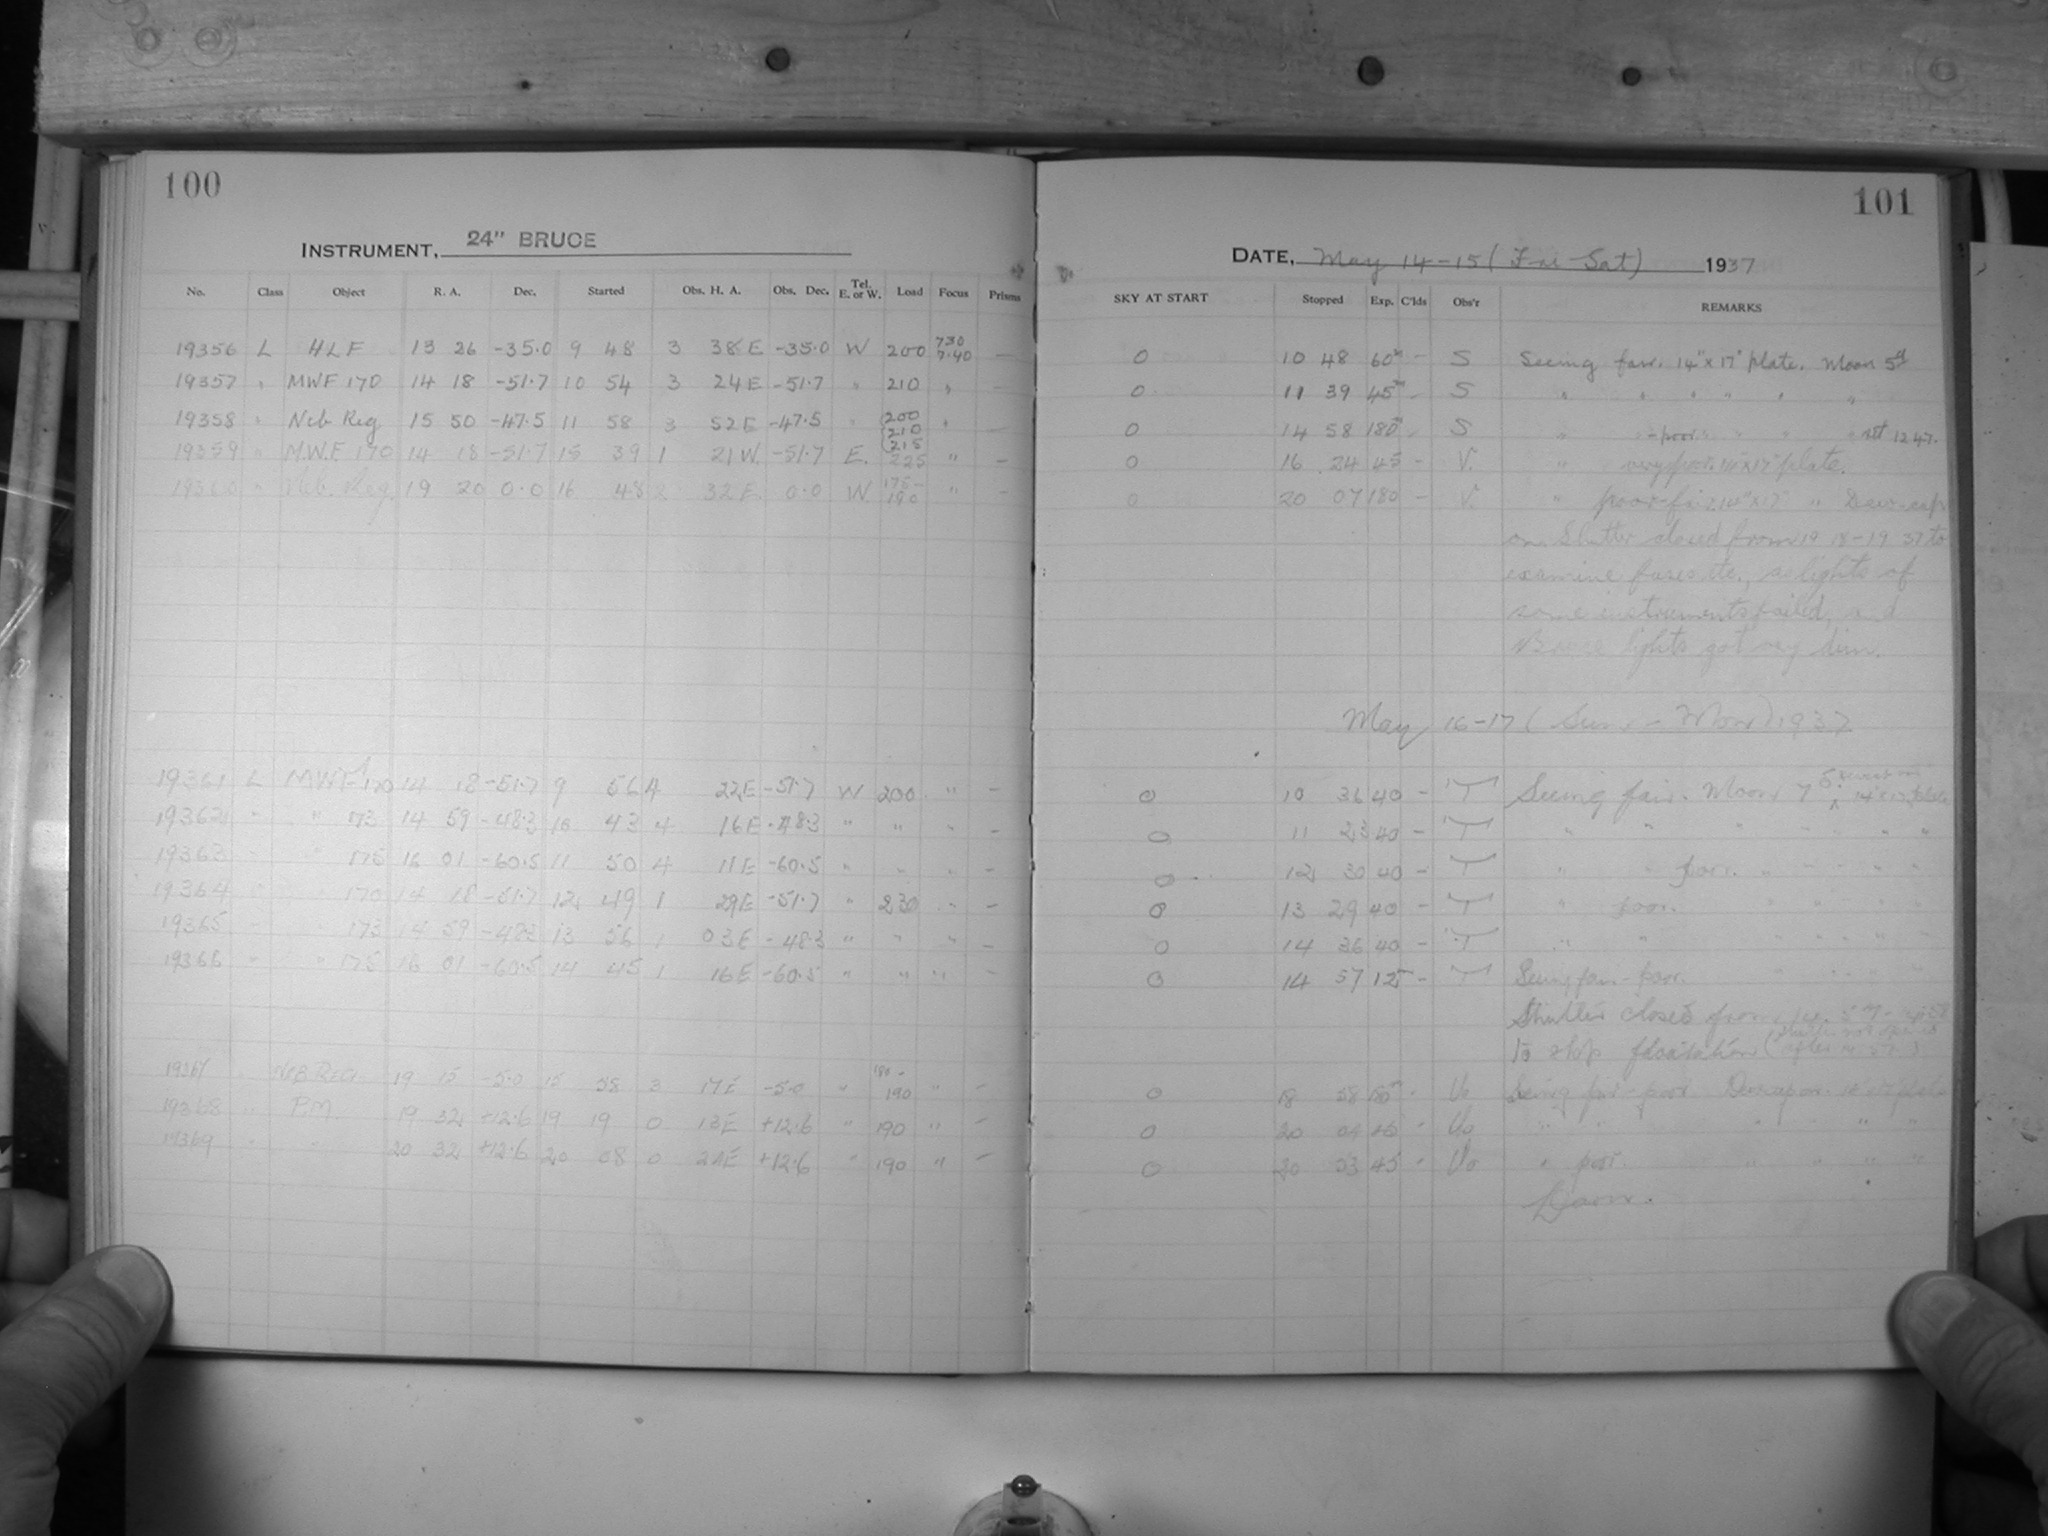 100
INSTRUMENT, 24" BRUCE
No. Class Object R. A. Dec. Started Obs. H. A. Obs. Dec. Tel. E. or W. Load Focus Prisms
19356 L HLF 13 26 -35.0 9 48 3 38 E -35.0 W 200 730 7.40 —
19357 " MWF 170 14 18 -51.7 10 54 3 24 E -51.7 " 210 " —
19358 " Neb Reg 15 50 -47.5 11 58 3 52 E -47.5 " 200 210 215 " —
19359 " M.W.F. 170 14 18 -51.7 15 39 1 21 W. -51.7 E. 225 " —
19360 " Neb. Reg. 19 20 0.0 16 48 2 32 E 0.0 W. 175- 190 " —
19361 L MWF 170 14 18 -51.7 9 56 4 22E -51.7 W 200 " —
19362 " " 173 14 59 -48.3 10 43 4 16E -48.3 " " " —
19363 " " 175 16 01 -60.5 11 50 4 11E -60.5 " " " —
19364 " " 170 14 18 -51.7 12 49 1 29E -51.7 " 230 " —
19365 " " 173 14 59 -48.3 13 56 1 03E -48.3 " " " —
19366 " " 175 16 01 -60.5 14 45 1 16E -60.5 " " " —
19367 " NEB REG. 19 15 -5.0 15 58 3 17E -5.0 " 180- 190 " —
19368 " P.M. 19 32 +12.6 19 19 0 13E +12.6 " 190 " —
19369 " " 20 32 +12.6 20 08 0 22E +12.6 " 190 " —
101
DATE, May 14-15 (Fri-Sat) 1937
SKY AT START Stopped Exp. C'lds Obs'r REMARKS
0 10 48 60m — S Seeing fair. 14"x17" plate. Moon 5d
0 11 39 45m — S " " " " " "
0 14 58 180m — S " "-poor " " " " set 12 47.
0 16 24 45 — V. " very poor. 14"x17" plate.
0 20 07 180 — V. " poor-fair. 14"x17" " Dew-cap
on. Shutter closed from 19 18-19 37 to
examine fuses etc., as lights of
some instruments failed, and
Bruce lights got very dim.
May 16-17 (Sun - Mon) 1937
0 10 36 40 — T Seeing fair. Moon 7 14x17 plate
0 11 23 40 — T " " " " " "
0 12 30 40 — T " " poor. " " " "
0 13 29 40 — T " poor. " " " "
0 14 36 40 — T " " " " " "
0 14 57 12 — T Seeing fair-poor. " " "
Shutter closed from 14 57 - 
to stop
0 18 58 180m " Vo Seeing fair-poor Dewcap on. plate
0 20 04 45 " Vo " " " " "
0 20 53 45 " Vo " poor. " " " "
Dawn.